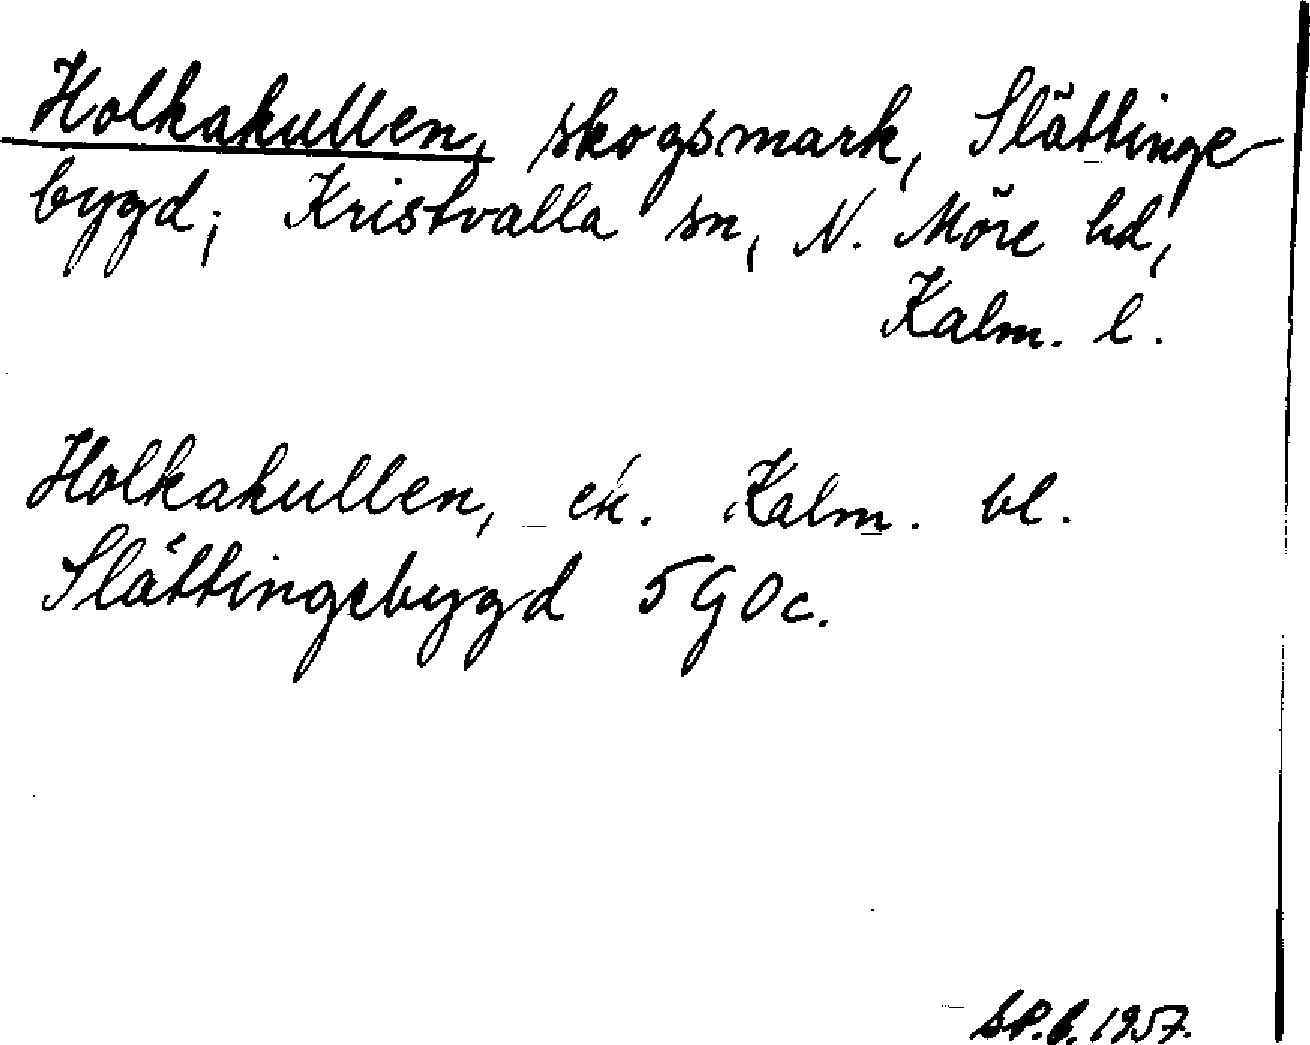 Holkakullen, skogsmark, Slättinge-
bygd, Kristvalla sn, N. Möre hd,
Kalm. l.
Holkakullen, ek. Kalm. bl.
Slättingebygd 5 G 0 c.
S.P.B. 1957.